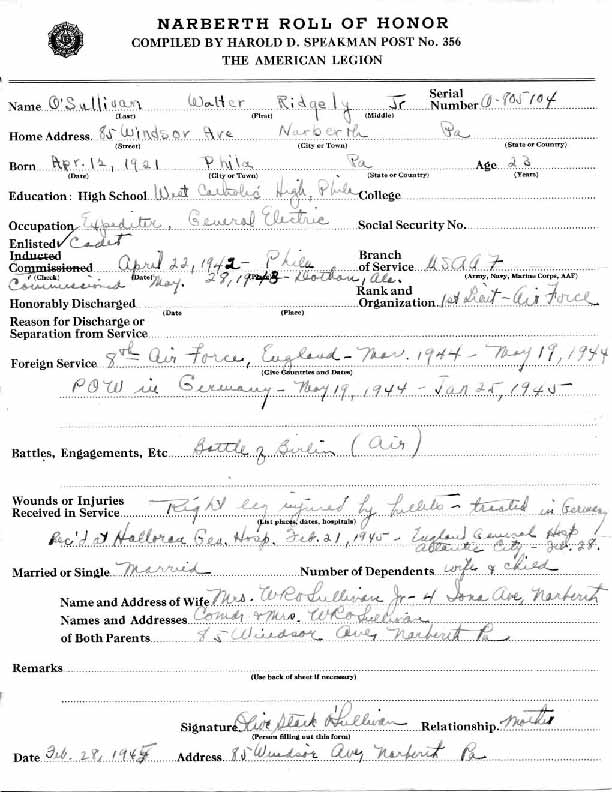 NARBERTH ROLL OF HONOR
COMPILED BY HAROLD D. SPEAKMAN POST No. 356
THE AMERICAN LEGION
Name O'Sullivan Walter Ridgely Jr Serial Number O-805104
(Last) (First) (Middle)
Home Address 85 Windsor Ave Narberth Pa
(Street) (City or Town) (State or Country)
Born Apr. 12, 1921 Phila Pa Age 23
(Date) (City or Town) (State or Country) (Years)
Education: High School West Catholic High, Phila College
Occupation Expediter, General Electric Social Security No.
Enlisted ✓ Cadet
Inducted
Commissioned April 22, 1942 - Phila Branch of Service USAAF
(Check) (Date) (Place) (Army, Navy, Marine Corps, AAF)
Commissioned May. 28, 1943 - Dothan, Ala. Rank and
Honorably Discharged Organization 1st Lieut - Air Force
(Date (Place)
Reason for Discharge or
Separation from Service
Foreign Service 8th Air Force, England - Mar. 1944 - May 19, 1944
(Give Countries and Dates)
POW in Germany - May 19, 1944 - Jan 25, 1945
Battles, Engagements, Etc Battle of Berlin (Air)
Wounds or Injuries
Received in Service Right leg injured by - treated in Germany
(List places, dates, hospitals)
Rec'd at Halloran Gen. Hosp. Feb. 21, 1945 - England General Hosp
Atlantic City - Feb. 28.
Married or Single Married Number of Dependents wife & child
Name and Address of Wife Mrs. WR O'Sullivan Jr - 4 Iona Ave, Narberth
Names and Addresses Comdr & Mrs. WR O'Sullivan
of Both Parents 85 Windsor Ave, Narberth Pa
Remarks
(Use back of sheet if necessary)
Signature Olive Stack O'Sullivan Relationship Mother
(Person filling out this form)
Date Feb. 28, 1945 Address 85 Windsor Ave, Narberth Pa